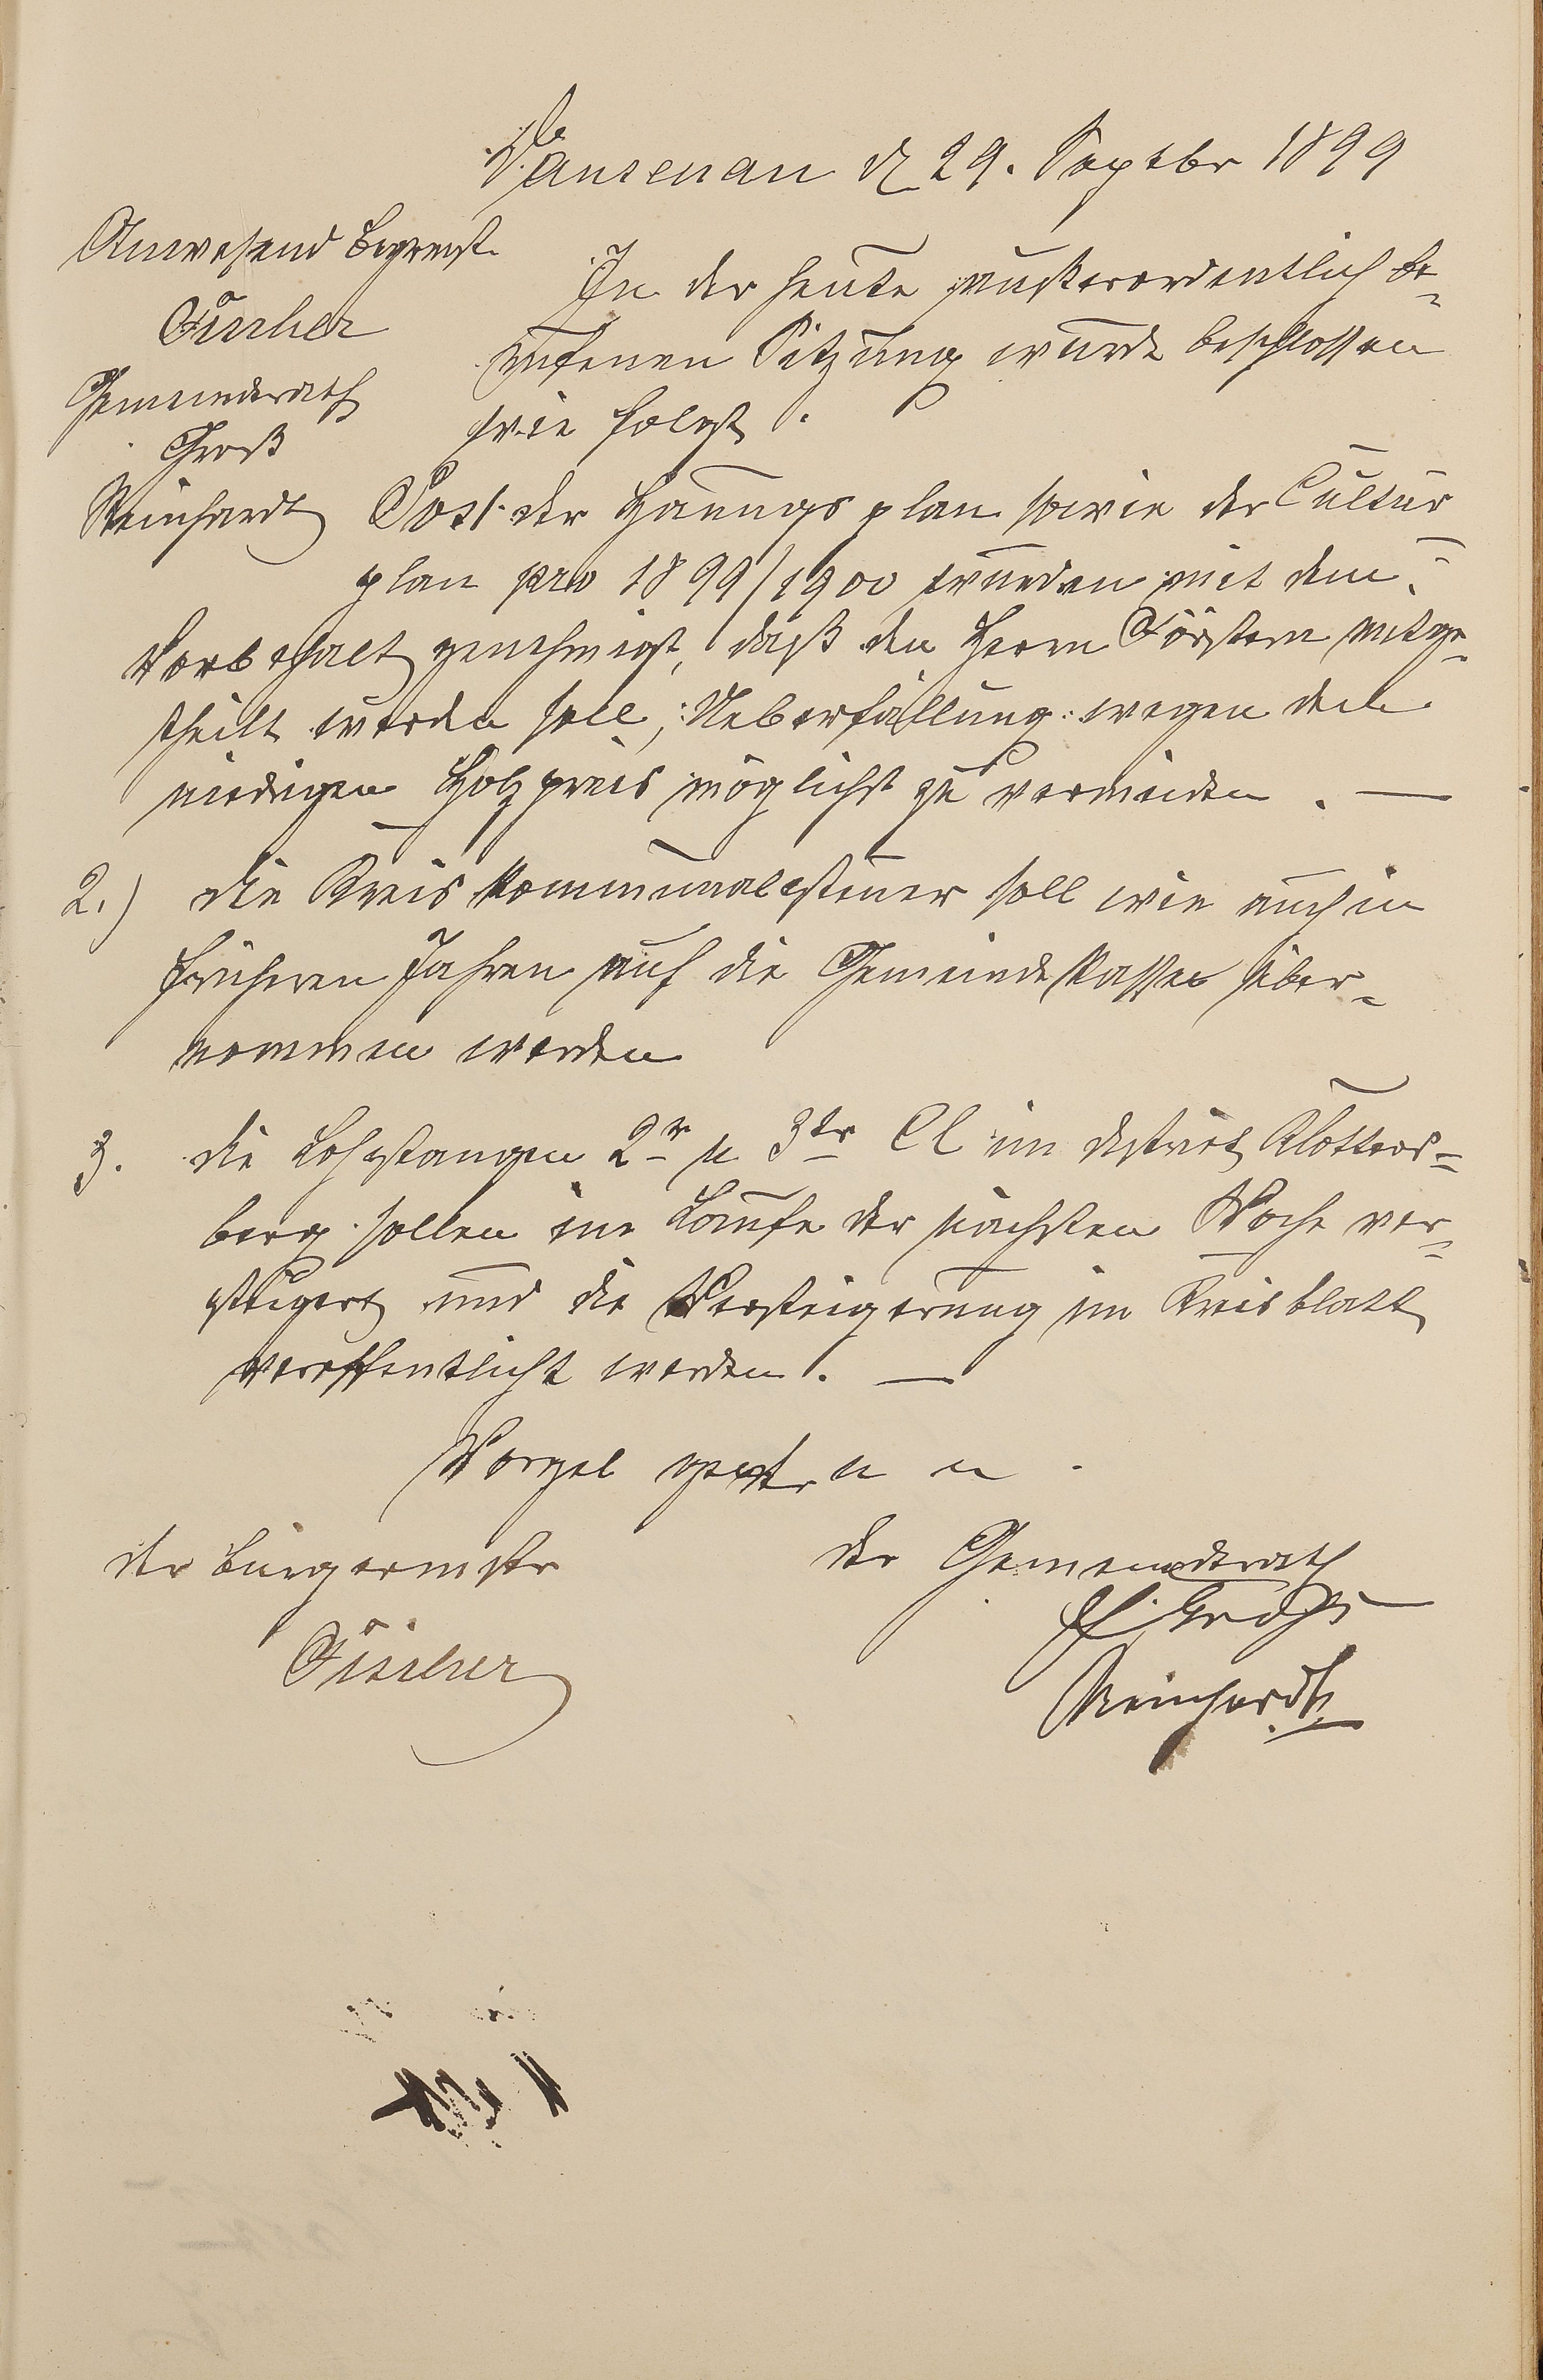 Dausenau d 29. Septbr 1899
Anwesend Bgrmst.
Fischer
Gemeinderath
Groß
Reinhardt
In der heute außerordentlich be=
rufenen Sitzung wurde beschlossen
wie folgt.
Pos 1. der Hauungsplan sowie der Cultur
plan pro 1899/1900 wurden mit dem
Vorbehalt genehmigt, daß den Herrn Förstern mitge=
theilt werden soll, Ueberfällung wegen dem
niedrigen Holzpreis möglichst zu vermeiden. —
2.) die Kreiskommunalsteuer soll wie auch in
früheren Jahren auf die Gemeindekasse über=
nommen werden
3. die Lohstangen 2r u 3tr Cl im District
berg sollen im Laufe der nächsten Woche ver=
steigert und die Versteigerung im Kreisblatt
veröffentlicht werden. —
Vorgel u
der Bürgermstr
Fischer
der Gemeinderath
Groß
Reinhardt